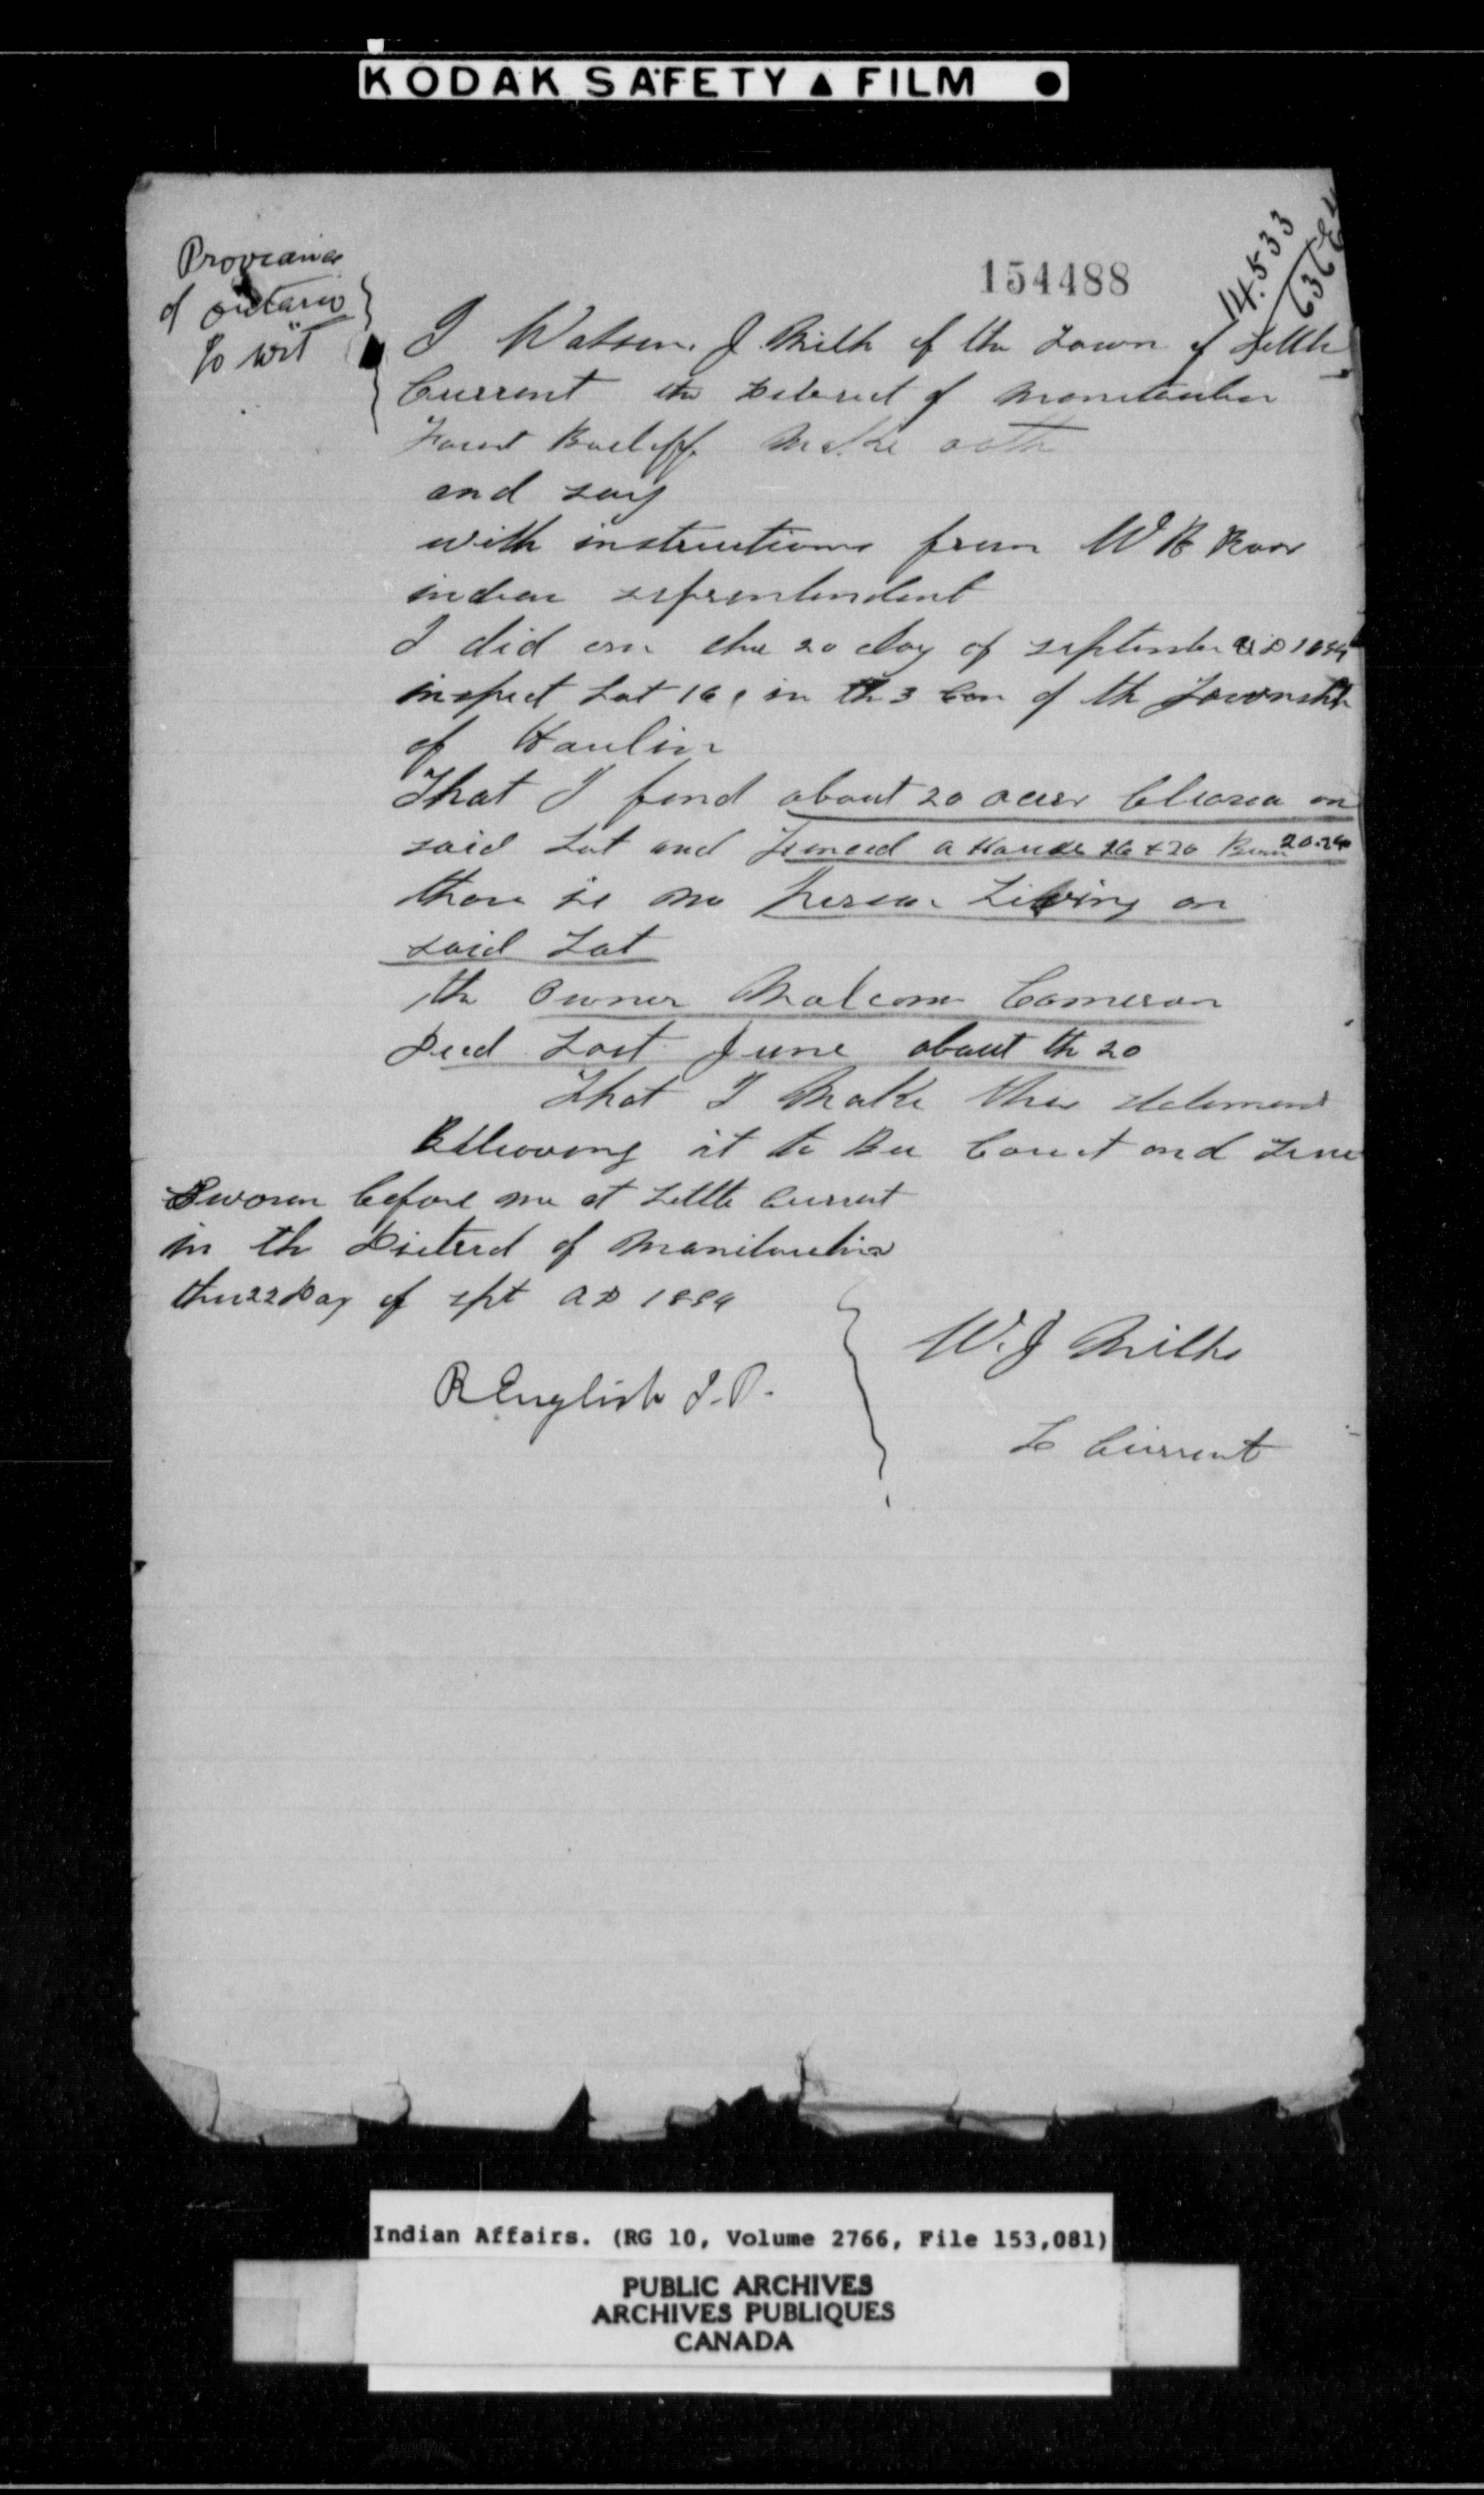 KODAK SAFETY ▲ FILM ●
154488
14.533
Province
of ontario
To wit
I Watson. J. Milk of the Town of Little
Current the District of Manitoulin
Bailiff make oath
and say
with instructions from W B
indian
I did on the 20 day of september AD 1894
inspect Lot 16, in th 3 Con of th Township
of
That I find about 20 acers on
said Lot and a House 26 x 20 20.24
thare is no person Living on
said Lot
the Owner Malcom Cameron
Died Last June about th 20
That I Make this statement
it to Bee and True
Sworn before me at Little Current
in th District of Manitoulin
this 22 Day of spt AD 1894
R English J.P.
W. J Milks
L Current
Indian Affairs. (RG 10, Volume 2766, File 153,081)
PUBLIC ARCHIVES
ARCHIVES PUBLIQUES
CANADA